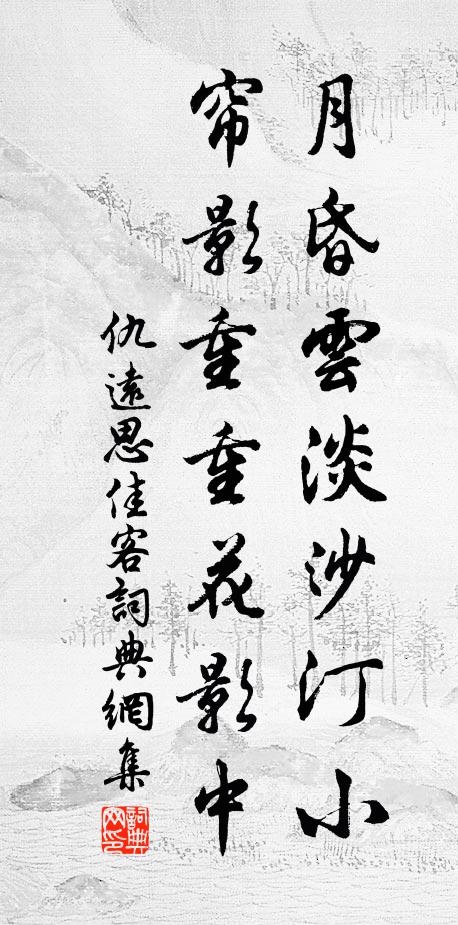 月昏雲淡沙汀小
帘影重重花影中
仇遠思佳客詞典網集
詞典網印